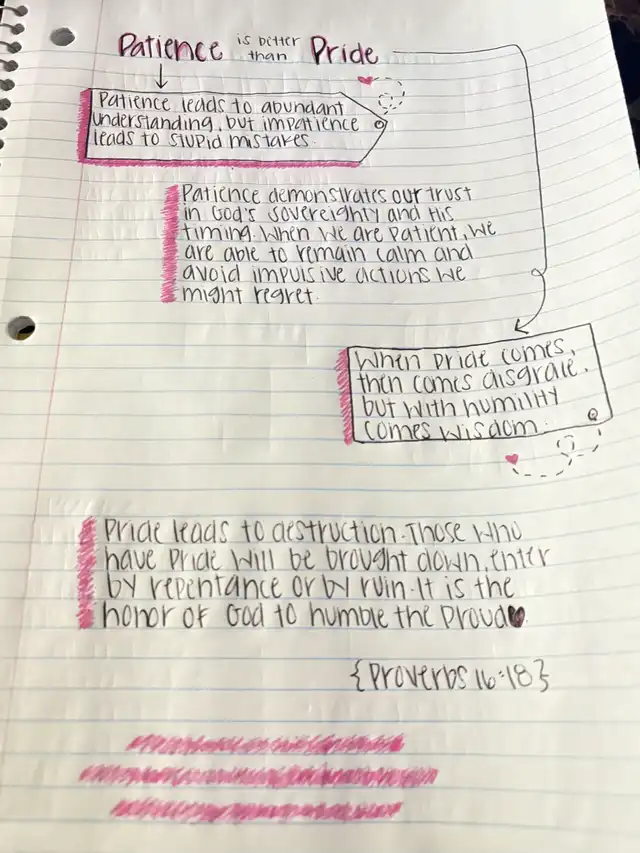 Patience is better than Pride
Patience leads to abundant
understanding, but impatience
leads to stupid mistakes.
Patience demonstrates our trust
in God's sovereighty and His
timing. When we are patient, we
are able to remain calm and
avoid impulsive actions we
might regret.
When pride comes,
then comes disgrace,
but with humility
comes wisdom.
Pride leads to destruction. Those who
have pride will be brought down, enter
by repentance or by ruin. It is the
honor of God to humble the proud
{Proverbs 16:18}